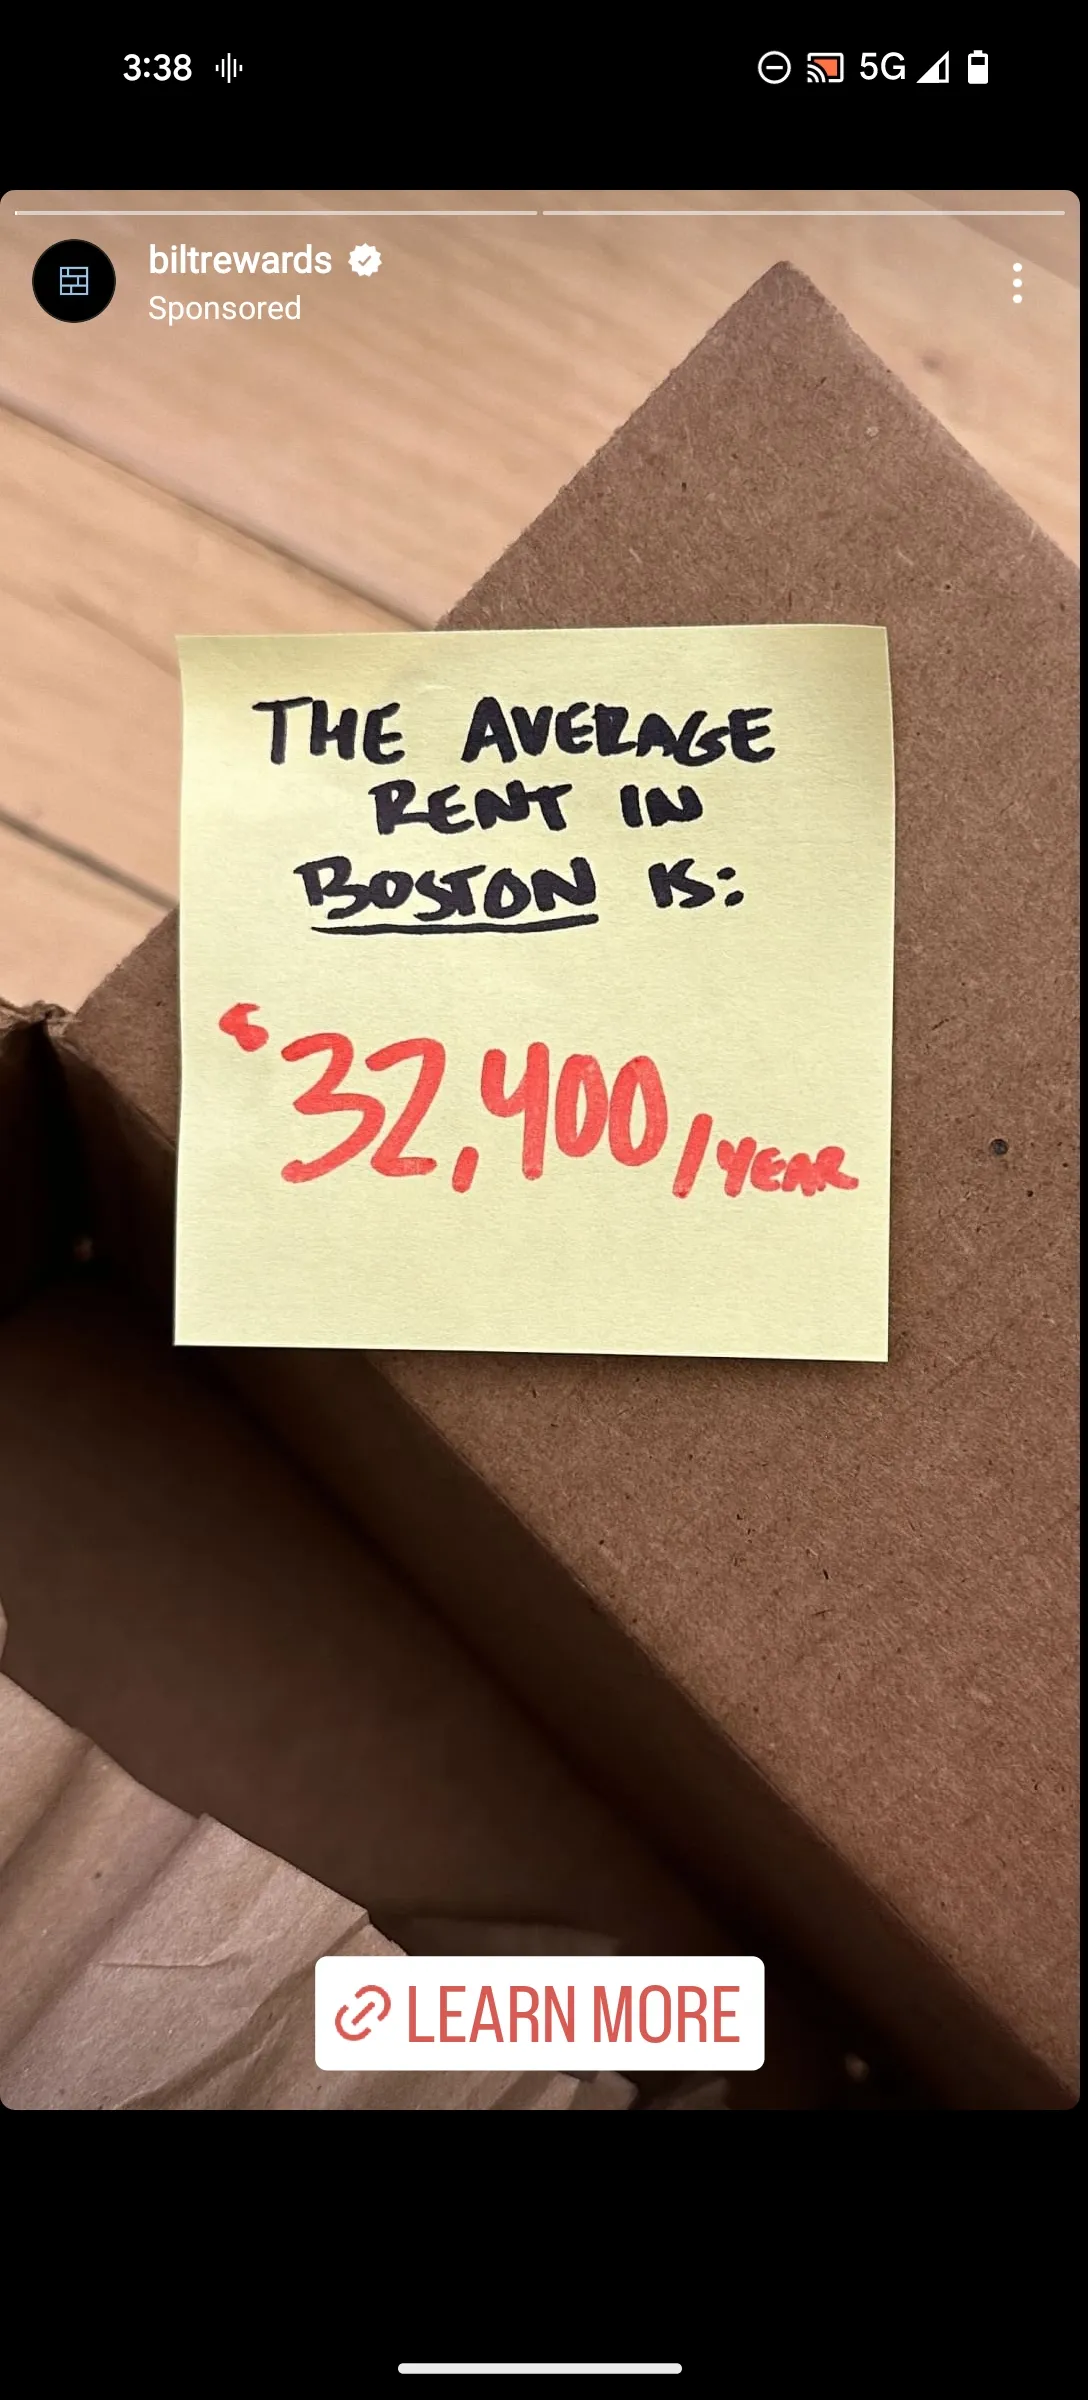 3:38
5G
biltrewards
Sponsored
THE AVERAGE
RENT IN
BOSTON IS:
32,400/YEAR
LEARN MORE